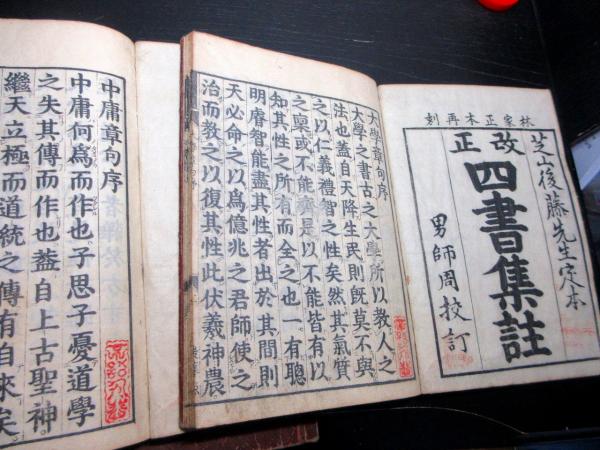 林家正本再刻
芝山後藤先生定本
改正
四書集註
男師周挍訂
大學章句序
大學之書古之大學所以教人之
法也蓋自天降生民則既莫不與
之以仁義禮智之性矣然其氣質
之稟或不能齊是以不能皆有以
知其性之所有而全之也一有聰
明睿智能盡其性者出於其間則
天必命之以為億兆之君師使之
治而教之以復其性此伏羲神農
中庸章句序
中庸何為而作也子思子憂道學
之失其傳而作也蓋自上古聖神
繼天立極而道統之傳有自來矣